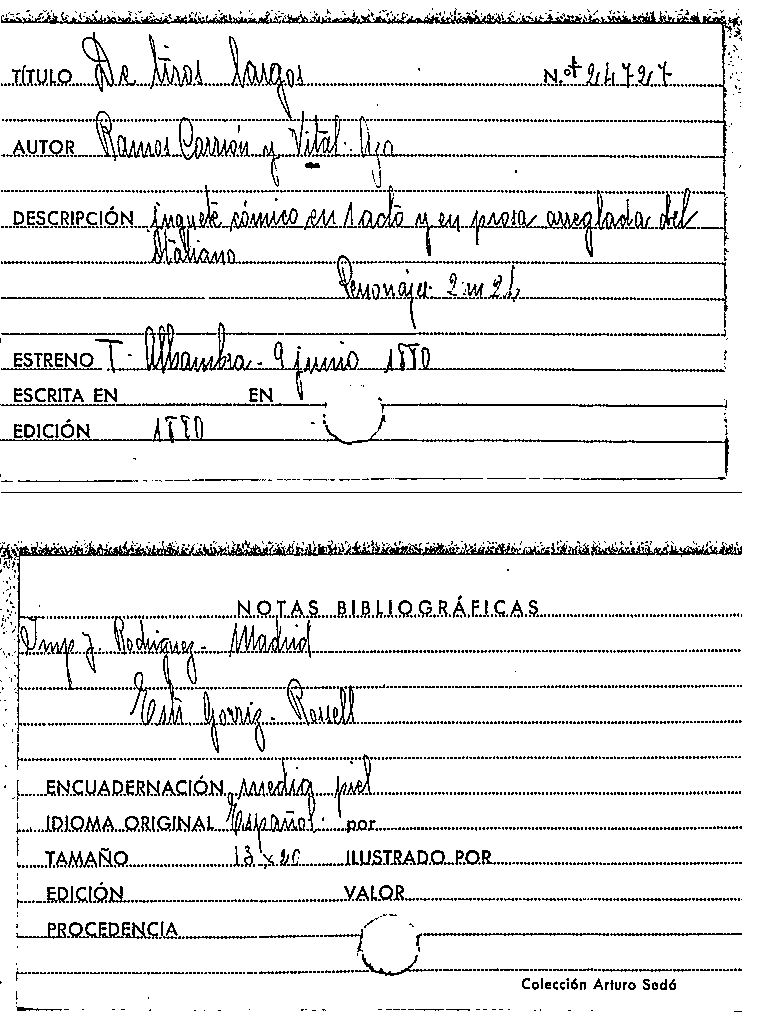 TÍTULO De tiros largos N.º 24727
AUTOR Ramos Carrión y Vital Aza
DESCRIPCIÓN juguete cómico en 1 acto y en prosa arreglada del
Italiano
Personajes 2 m 2 h
ESTRENO T. Alhambra - 9 junio 1880
ESCRITA EN EN
EDICIÓN 1880
NOTAS BIBLIOGRÁFICAS
Imp J. Rodriguez - Madrid
Gorriz - Rosell
ENCUADERNACIÓN media piel
IDIOMA ORIGINAL Español por
TAMAÑO 13 x 20 ILUSTRADO POR
EDICIÓN VALOR
PROCEDENCIA
Colección Arturo Sedó